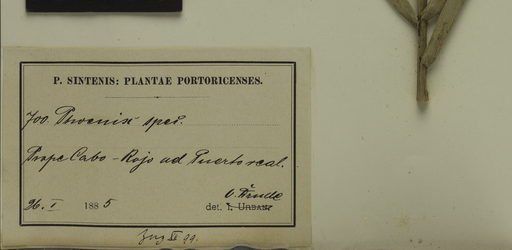 P. SINTENIS: PLANTAE PORTORICENSES.
700. Phoenix spec.
Prope Cabo-Rojo ad Puerto real.
26. I 1885 det. I. URBAN